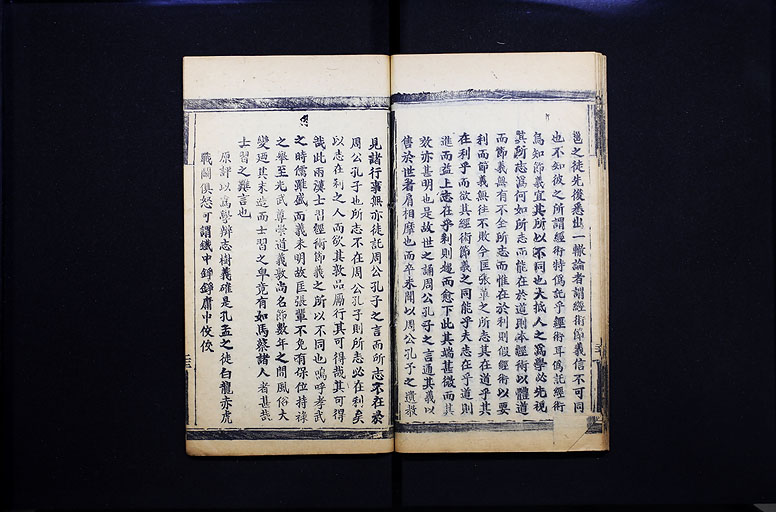 邕之徒先後悉出一轍論者謂經術節義信不可同
也不知彼之所謂經術特僞託乎經術耳僞託經術
烏知節義宜其所以不同也大抵人之爲學必先視
其所志爲何如所志而能在於道則本經術以體道
而節義無有不全所志而惟在於利則假經術以要
利而節義無往不敗今匡張輩之所志其在道乎其
在利乎而欲其經術節義之同能乎夫志在乎道則
進而益上志在乎利則趨而愈下此其端甚微而其
效亦甚明也是故世之誦周公孔子之言通其義以
售於世者肩相摩也而卒未聞以周公孔子之遺教
見諸行事無亦徒託周公孔子之言而所志不在於
周公孔子也所志不在周公孔子則所志必在利矣
以志在利之人而欲其敦品厲行其可得哉其可得
哉此兩漢士習經術節義之所以不同也嗚呼孝武
之時儒雖盛而義未明故匡張輩不免有保位持祿
之舉至光武尊崇道義敦尚名節數年之間風俗大
變迺其末造而士習之卑竟有如馬蔡諸人者甚哉
士習之難言也
原評以爲學辨志樹義確是孔孟之徒白龍赤虎
戰鬭俱恕可謂鐵中錚錚庸中佼佼